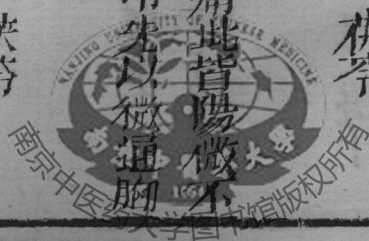 茯苓
痛此皆陽微不
先以微通腳
苓
NANJING UNIVERSITY OF CHINESE MEDICINE
南京中医药大学图书馆版权所有